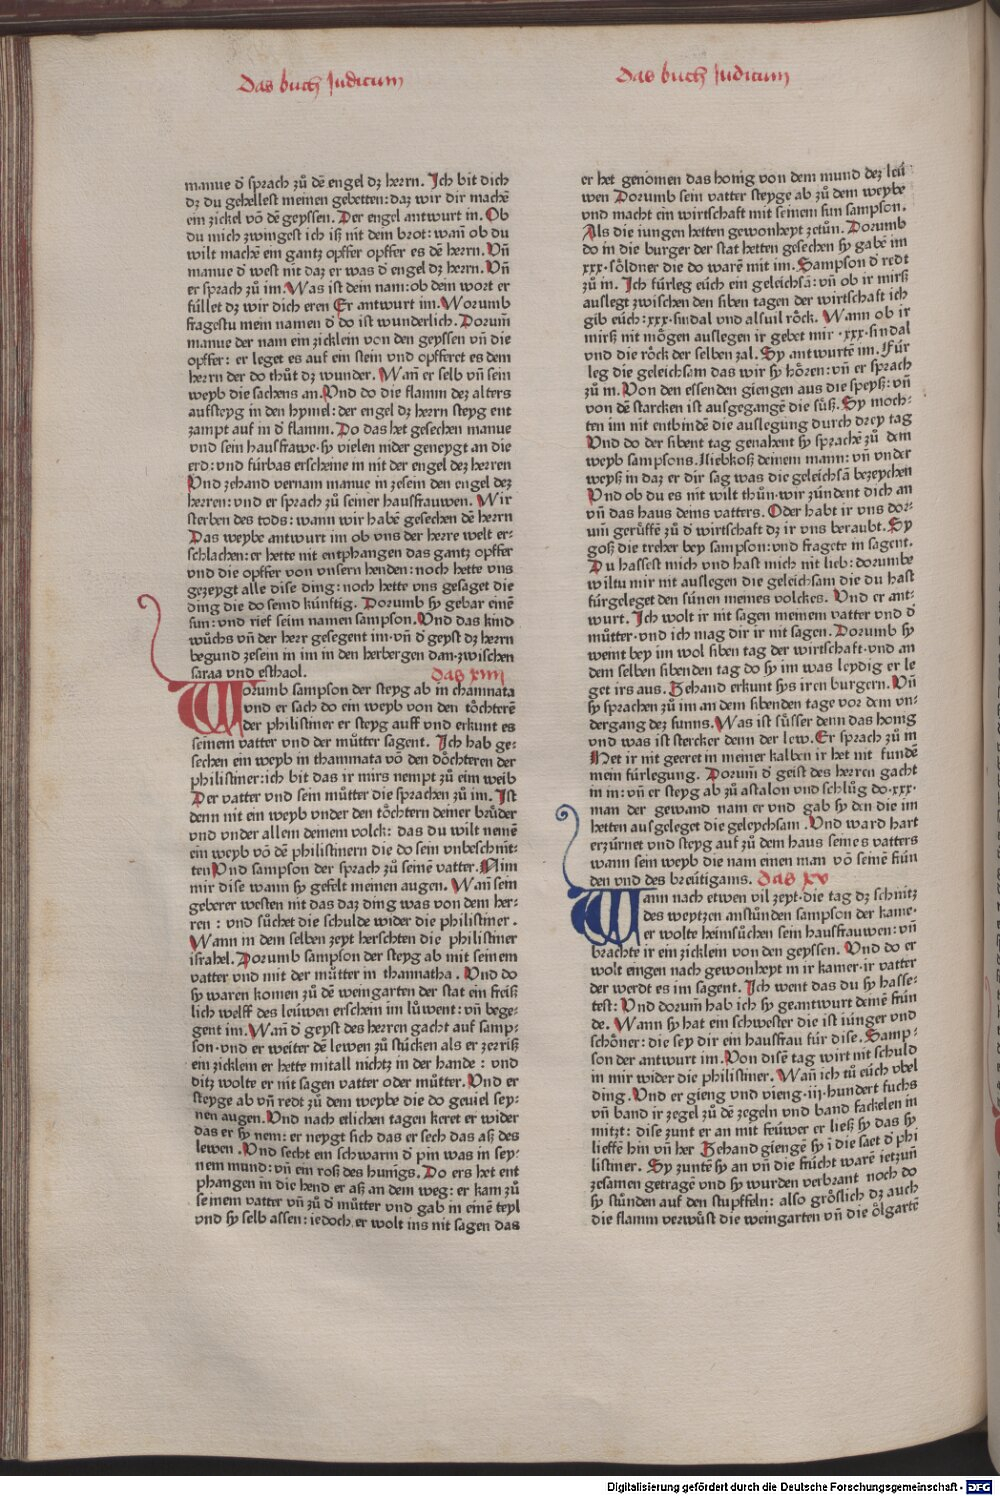 Das buch Judicum
Das buch Judicum
manue d᷑ sprach zů dē engel dꝫ herrn. Ich bit dich
dꝫ du gehellest meinen gebetten: daz wir dir machē
ein zickel vō dē geyssen. Der engel antwurt in. Ob
du mich zwingest ich iß nit dem brot: wañ ob du
wilt machē ein gantz opffer opffer es dē herrn. Vñ
manue d᷑ west nit daz er was d᷑ engel dꝫ herrn. Vñ
er sprach zů im. Was ist dein nam: ob dein wort er
füllet dꝫ wir dich eren Er antwurt im. Worumb
fragestu mein namen d᷑ do ist wunderlich. Dorum̄
manue der nam ein zicklein von den geyssen vñ die
opffer: er leget es auf ein stein vnd opfferet es dem
herrn der do thůt dꝫ wunder. Wañ er selb vñ sein
weyb die sachens an. Vnd do die flamm dez alters
aufsteyg in den hymel: der engel dꝫ herrn steyg ent
zampt auf in d᷑ flamm. Do das het gesechen manue
vnd sein hausfrawe· sy vielen nider geneygt an die
erd: vnd fürbas erscheine in nit der engel dez herren
Vnd zehand vernam manue in zesein den engel dez
herren: vnd er sprach zů seiner hausfrauwen. Wir
sterben des tods: wann wir habē gesechen dē herrn
Das weybe antwurt im ob vns der herre welt er-
schlachen: er hette nit entphangen das gantz opffer
vnd die opffer von vnsern henden: noch hette vns
gezeygt alle dise ding: noch hette vns gesaget die
ding die do seind künftig. Dorumb sy gebar einē
sun: vnd rief seim namen sampson. Vnd das kind
wůchs vñ der herr gesegent im· vñ d᷑ geyst dꝫ herrn
begund zesein in im in den herbergen dan· zwischen
saraa vnd esthaol. das xiiii
Worumb sampson der steyg ab in thamnata
vnd er sach do ein weyb von den töchterē
der philistiner er steyg auff vnd erkunt es
seinem vatter vnd der můtter sagent. Ich hab ge-
sechen ein weyb in thammata võ den döchteren der
philistiner: ich bit das ir mirs nempt zů eim weib
Der vatter vnd sein můtter die sprachen zů im. Ist
denn nit ein weyb vnder den töchtern deiner brůder
vnd vnder allem deinem volck: das du wilt nemē
ein weyb võ dē philistinern die do sein vnbeschnit-
ten Vnd sampson der sprach zů seinē vatter. Nim
mir dise wann sy gefelt meinen augen. Wañ sein
geberer westen nit das daz ding was von dem her-
ren : vnd sůchet die schulde wider die philistiner .
Wann in dem selben zeyt herschten die philistiner
israhel. Dorumb sampson der steyg ab mit seinem
vatter vnd mit der můtter in thannatha . Vnd do
sy waren komen zů dē weingarten der stat ein freiß
lich welff des leüwen erschein im lůwent: vñ bege-
gent im. Wañ d᷑ geyst des herren gacht auf samp-
son· vnd er weiter dē lewen zů stücken als er zerriß
ein zicklein er hette mitall nichtz in der hande : vnd
ditz wolte er nit sagen vatter oder můtter. Vnd er
steyge ab vñ redt zů dem weybe die do geuiel sey-
nen augen. Vnd nach etlichen tagen keret er wider
das er sy nem: er neygt sich das er sech das aß des
lewen . Vnd secht ein schwarm d᷑ pin was in sey-
nem mund: vñ ein roß des hunigs. Do ers het ent
phangen in die hend er aß an dem weg: er kam zů
seinem vatter vñ zů d᷑ můtter vnd gab in einē teyl
vnd sy selb assen: iedoch er wolt ins nit sagen das
er het genōmen das honig von dem mund dez leü
wen Dorumb sein vatter steyge ab zů dem weybe
vnd macht ein wirtschaft mit seinem sun sampson.
Als die iungen hetten gewonheyt zetůn. Dorumb
do in die burger der stat hetten gesechen sy gabē im
xxx· söldner die do warē mit im. Sampson d᷑ redt
zů in. Ich fürleg eüch ein geleichsā: vñ ob ir mirß
auslegt zwischen den siben tagen der wirtschaft ich
gib eüch: xxx· sindal vnd alsuil röck. Wann ob ir
mirß nit mögen auslegen ir gebet mir · xxx· sindal
vnd die röck der selben zal. Sy antwurtē im. Für
leg die geleichsam das wir sy hören: vñ er sprach
zů in. Von den essenden giengen aus die speyß: vñ
von dē starcken ist ausgegangē die süß. Sy moch-
ten im nit entbindē die auslegung durch drey tag
Vnd do der sibent tag genahent sy sprachē zů dem
weyb sampsons. Nliebkoß deinem mann: vñ vnder
weyß in daz er dir sag was die geleichsā bezeychen
Vnd ob du es nit wilt thůn· wir zündent dich an
vñ das haus deins vatters. Oder habt ir vns dor-
um̄ gerůffē zů d᷑ wirtschaft dꝫ ir vns beraubt. Sy
goß die treher bey sampson: vnd fragete in sagent.
Du hassest mich vnd hast mich nit lieb: dorumbe
wiltu mir nit auslegen die geleichsam die du hast
fürgeleget den sünen meines volckes. Vnd er ant-
wurt. Ich wolt ir nit sagen meinem vatter vnd d᷑
můtter· vnd ich mag dir ir nit sagen. Dorumb sy
weint bey im wol siben tag der wirtschaft· vnd an
dem selben sibenden tag do sy im was leydig er le
get irs aus. Zehand erkunt sys iren burgern. Vñ
sy sprachen zů im an dem sibenden tage vor dem vn-
dergang dez sunns. Was ist süsser denn das honig
vnd was ist stercker denn der lew. Er sprach zů in
Net ir nit geeret in meiner kalben ir het nit fundē
mein fürlegung. Dorum̄ d᷑ geist des herren gacht
in in: vñ er steyg ab zů astalon vnd schlůg do· xxx·
man der gewand nam er vnd gab sy den die im
hetten ausgeleget die geleychsam . Vnd ward hart
erzürnet vnd steyg auf zů dem haus seines vatters
wann sein weyb die nam einen man võ seinē frün
den vnd des breütigams. das xv
Wann nach etwen vil zeyt· die tag dꝫ schnitz
des weytzen anstůnden sampson der kame·
er wolte heimsůchen sein hausfrauwen: vñ
brachte ir ein zicklein von den geyssen. Vnd do er
wolt eingen nach gewonheyt in ir kamer· ir vatter
der werdt es im sagent. Ich went das du sy hasse-
test: Vnd dorum̄ hab ich sy geantwurt deinē frün
de. Wann sy hat ein schwester die ist iünger vnd
schöner: die sey dir ein hausfrau für dise. Samp-
son der antwurt im. Von disē tag wirt nit schuld
in mir wider die philistiner. Wañ ich tů eüch vbel
ding. Vnd er gieng vnd vieng· iij· hundert fuchs
vñ band ir zegel zů dē zegeln vnd band fackelen in
mitzt: dise zunt er an mit feüwer er ließ sy das sy
lieffē hin vñ her Zehand giengē sy ī die saet d᷑ phi
listiner. Sy zuntē sy an vñ die frücht warē ietzuñ
zesamen getragē vnd sy wurden verbrant noch do
sy stůnden auf den stupffeln: also gröslich dꝫ auch
die flamm verwůst die weingarten vñ die ölgartē
Digitalisierung gefördert durch die Deutsche Forschungsgemeinschaft - DFG